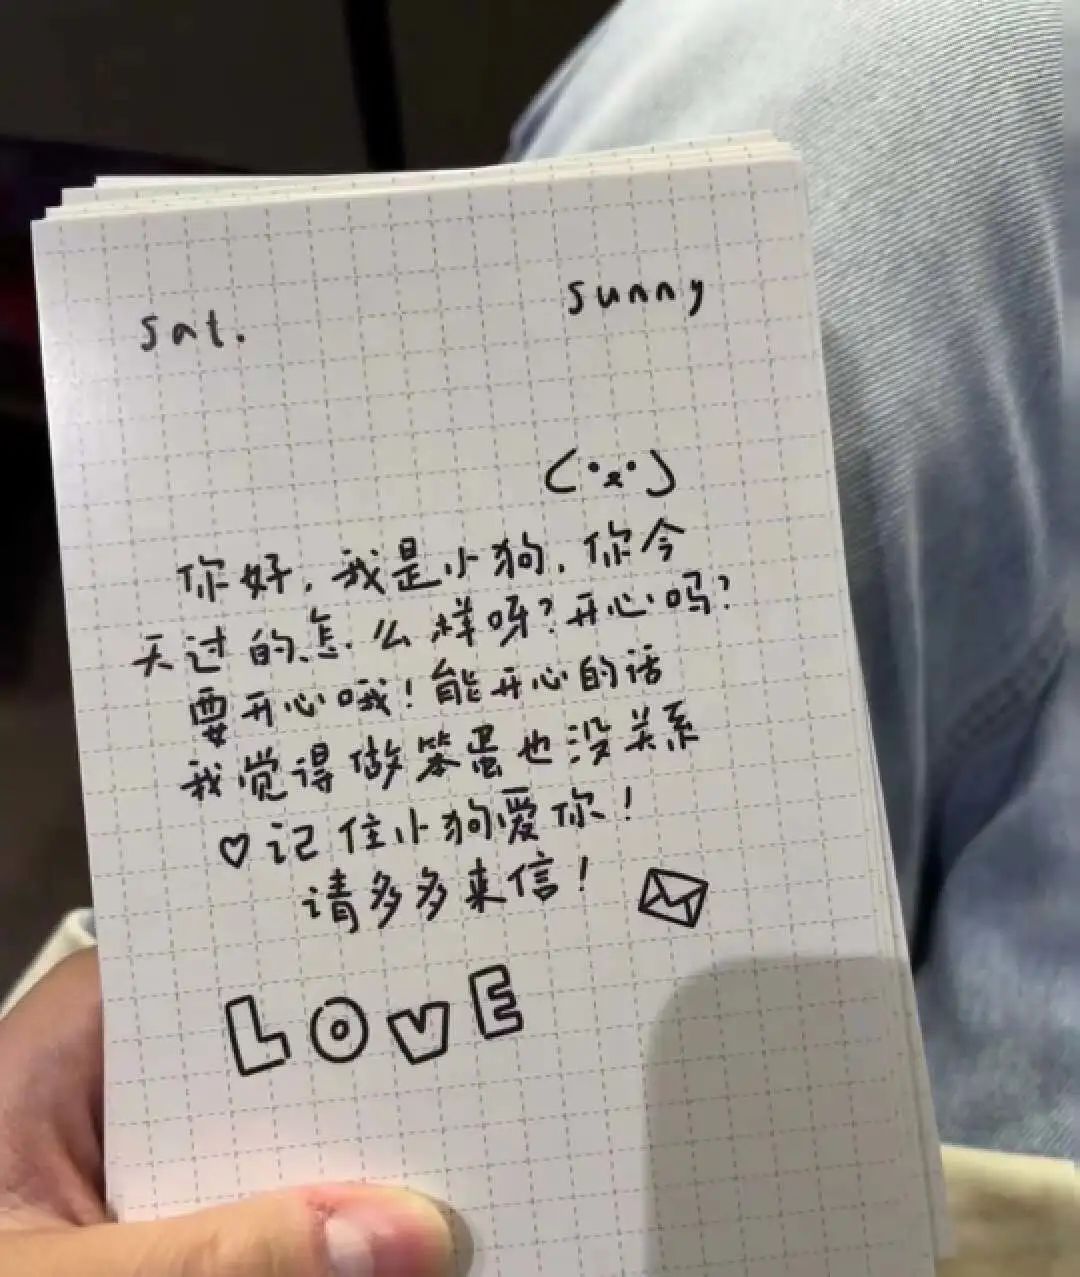 Sat. sunny
你好，我是小狗，你今
天过的怎么样呀？开心吗？
要开心哦！能开心的话
我觉得做笨蛋也没关系
♡记住小狗爱你！
请多多来信！
LOVE